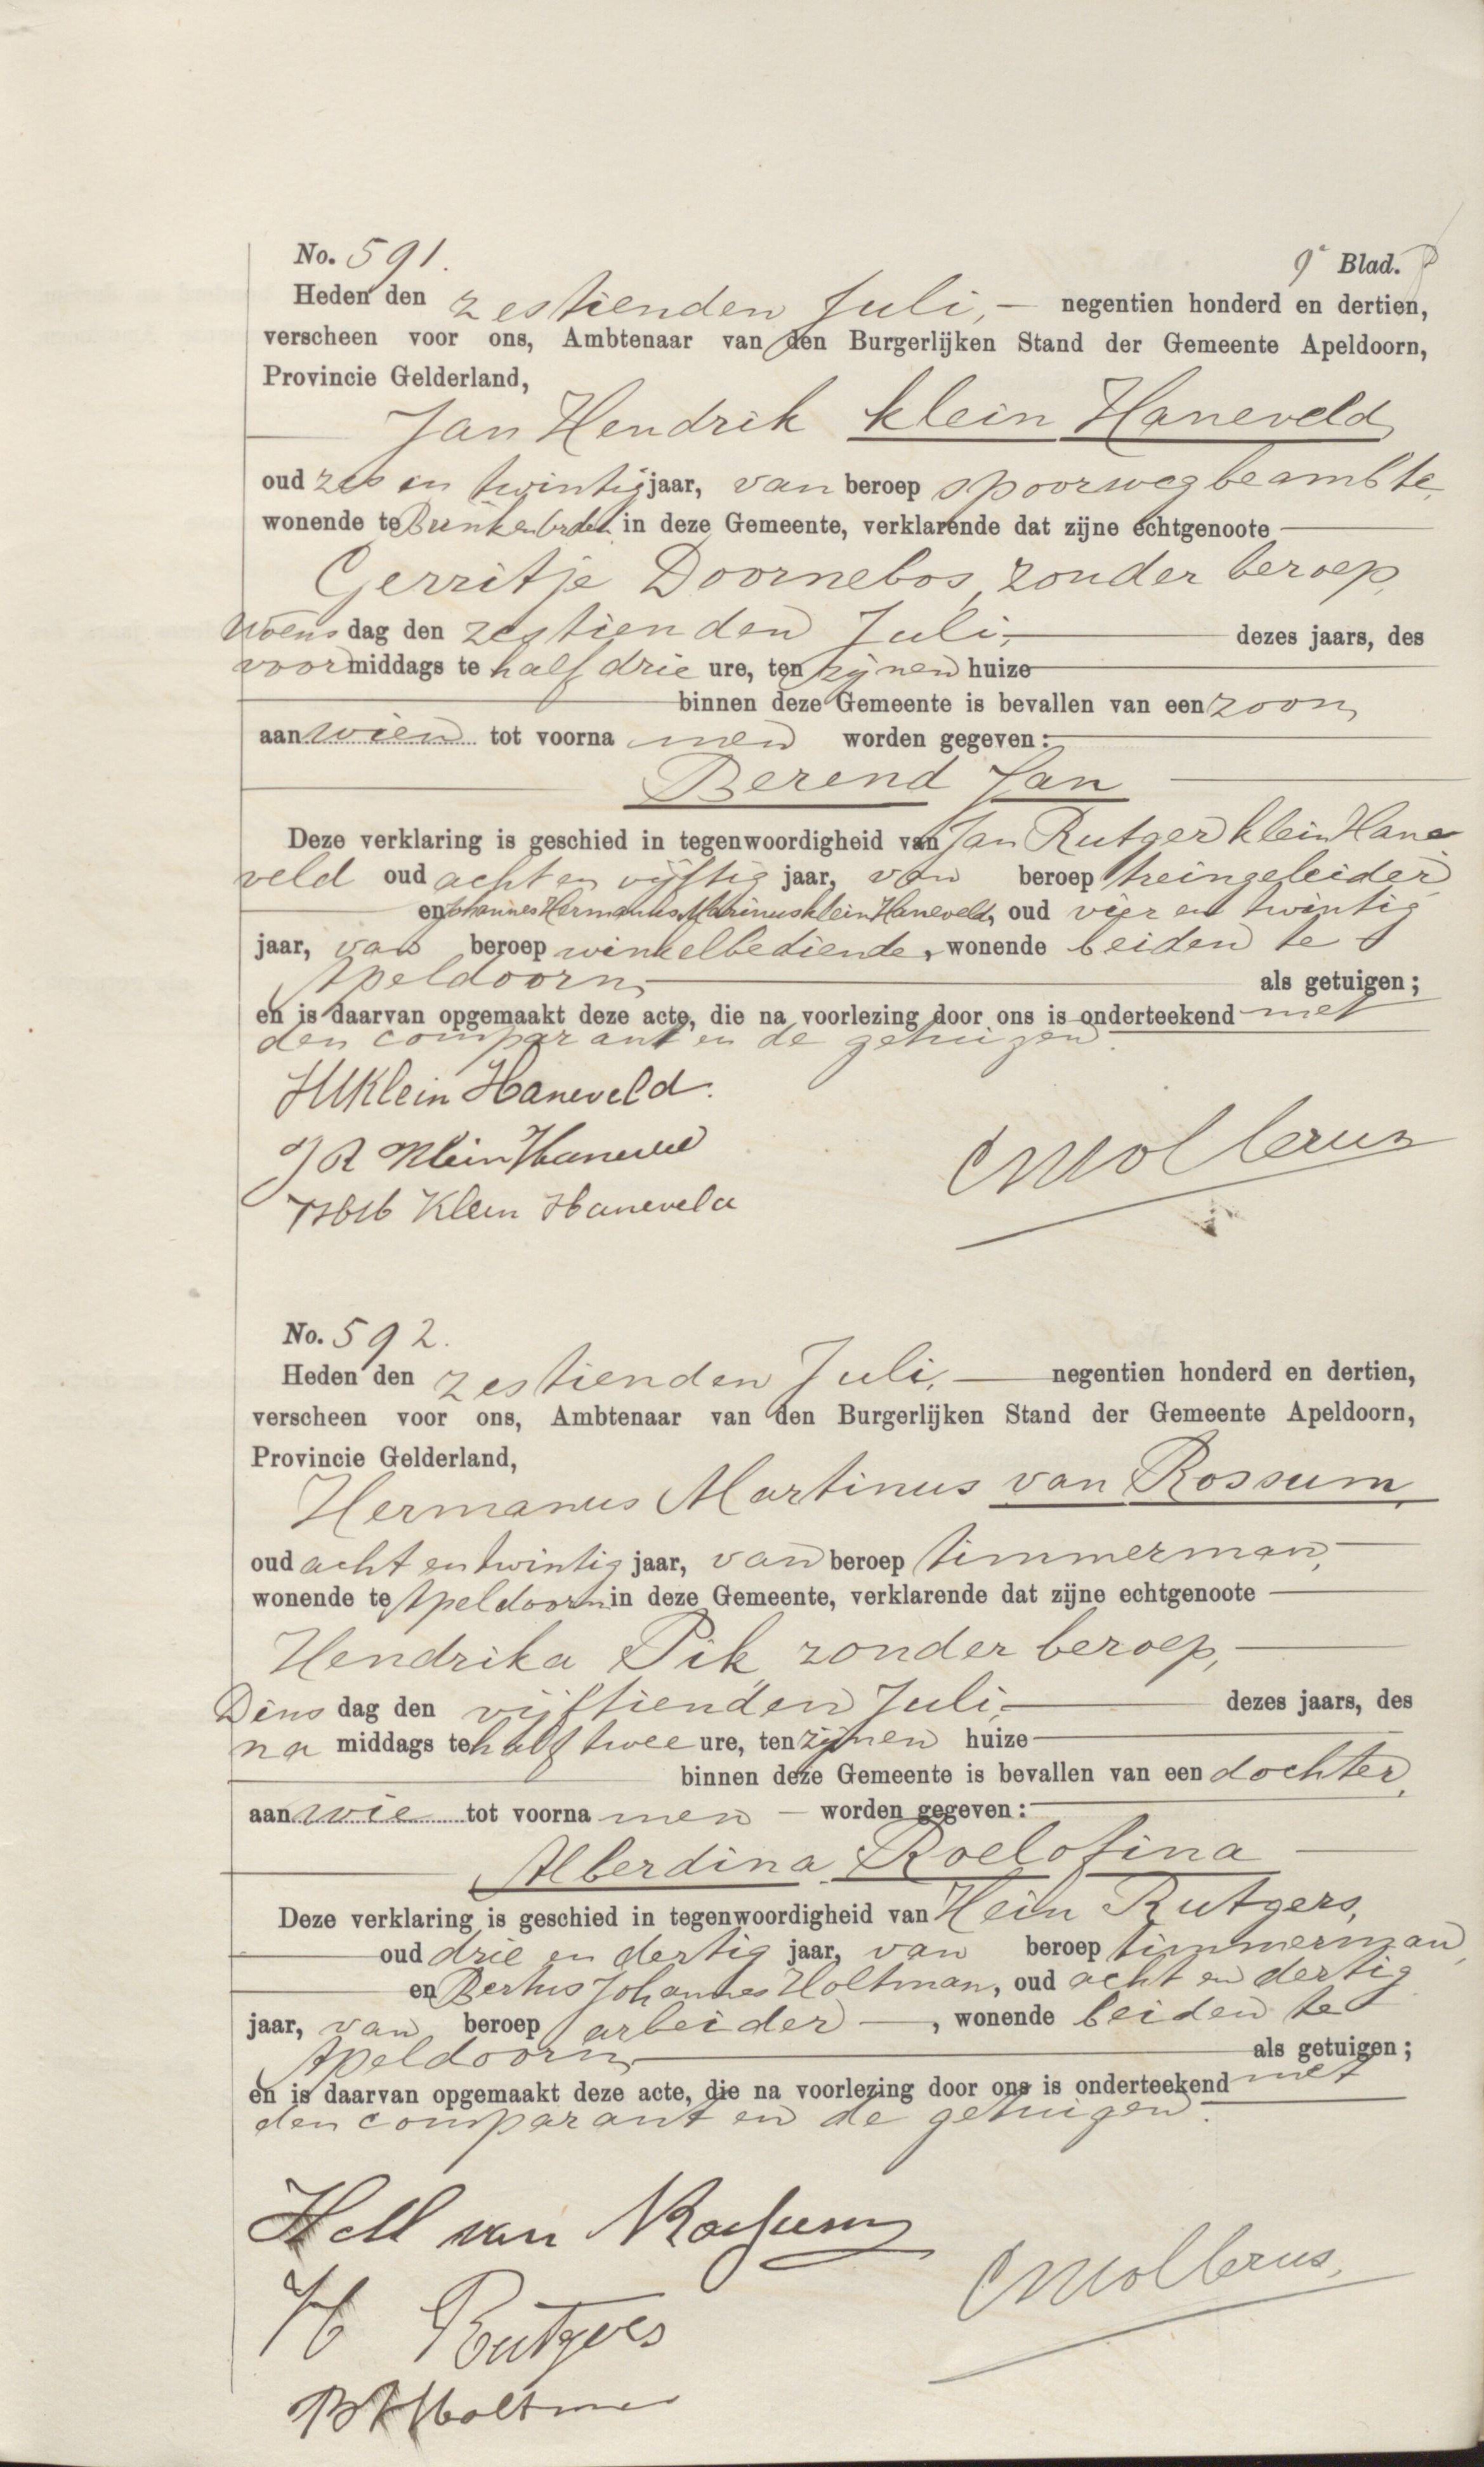 No. 591. 9e Blad.
Heden den zestienden Juli, negentien honderd en dertien,
verscheen voor ons, Ambtenaar van den Burgerlijken Stand der Gemeente Apeldoorn,
Provincie Gelderland,
Jan Hendrik klein Haneveld
oud zes en twintig jaar, van beroep spoorwegbeambte,
wonende te in deze Gemeente, verklarende dat zijne echtgenoote
Gerritje Doornebos, zonder beroep,
Woensdag den zestienden Juli, dezes jaars, des
voormiddags te half drie ure, ten zijnen huize
binnen deze Gemeente is bevallen van een zoon,
aan wien tot voornamen worden gegeven:
Berend Jan
Deze verklaring is geschied in tegenwoordigheid van Jan Rutger klein Hane
veld oud acht en vijftig jaar, van beroep treingeleider
en Johannes Hermanus Marinus klein Haneveld, oud vier en twintig
jaar, van beroep winkelbediende, wonende beiden te
Apeldoorn, als getuigen;
en is daarvan opgemaakt deze acte, die na voorlezing door ons is onderteekend met
den comparant en de getuigen.
JHKlein Haneveld.
JR Klein Haneveld
JHM Klein Haneveld
CMollerus
No. 592.
Heden den zestienden Juli, negentien honderd en dertien,
verscheen voor ons, Ambtenaar van den Burgerlijken Stand der Gemeente Apeldoorn,
Provincie Gelderland,
Hermanus Martinus van Rossum,
oud acht en twintig jaar, van beroep timmerman,
wonende te Apeldoorn in deze Gemeente, verklarende dat zijne echtgenoote
Hendrika Pik, zonder beroep,
Dinsdag den vijftienden Juli, dezes jaars, des
namiddags te half twee ure, ten zijnen huize
binnen deze Gemeente is bevallen van een dochter,
aan wie tot voornamen worden gegeven:
Alberdina Roelofina
Deze verklaring is geschied in tegenwoordigheid van Hein Rutgers,
oud drie en dertig jaar, van beroep timmerman,
en Bertus Johannes Holtman, oud acht en dertig
jaar, van beroep arbeider, wonende beiden te
Apeldoorn, als getuigen;
en is daarvan opgemaakt deze acte, die na voorlezing door ons is onderteekend met
den comparant en de getuigen.
HM van Rossum
H Rutgers
BJHoltman
CMollerus.